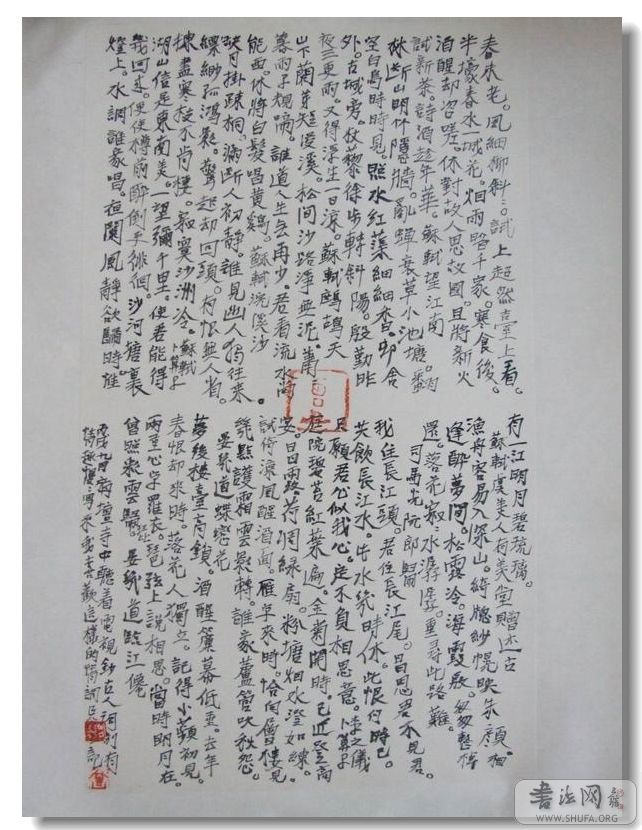 春未老。風細柳斜ミ。試上超然臺上看。
半壕春水一城花。烟雨暗千家。寒食後。
酒醒却咨嗟。休對故人思故國。且將新火
試新茶。詩酒趁年華 蘇軾望江南
林斷山明竹隱牆。亂蟬衰草小池塘。翻
空白鳥時時見。照水紅蕖細細香。邨舍
外。古城旁。杖藜徐步轉斜陽。殷勤昨
夜三更雨。又得浮生一日涼。蘇軾鷓鴣天
山下蘭芽短浸溪。松間沙路淨無泥。蕭蕭
暮雨子規啼。誰道人生無再少。君看流水尚
能西。休將白髮唱黃鷄。蘇軾浣溪沙
缺月掛疎桐。漏斷人初靜。誰見幽人獨往來。
縹緲孤鴻影。驚起却回頭。有恨無人省。
揀盡寒枝不肯棲。寂寞沙洲冷。蘇軾卜算子
湖山信是東南美。一望彌千里。使君能得
幾回來。便使樽前醉倒更徘徊。沙河塘裏
燈上。水調誰家唱。夜闌風靜欲歸時。惟
有一江明月碧琉璃。
蘇軾虞美人有美堂贈述古
漁舟容易入深山。綺牕紗幌映朱顏。相
逢醉夢間。松露冷。海霞殷。匆匆整棹
還。落花寂寂水潺潺。重尋此路難。
司馬光阮郎歸
我住長江頭。君住長江尾。日日思君不見君。
共飲長江水。此水幾時休。此恨何時已。
只願君心似我心。定不負相思意。李之儀卜算子
庭院碧苔紅葉遍。金菊開時。已近登高
宴。日日露荷凋綠扇。粉塘烟水澄如練。
試倚涼風醒酒面。雁字來時。恰向層樓見。
幾點護霜雲影轉。誰家蘆管吹秋怨。
晏幾道蝶戀花
夢後樓臺高鎖。酒醒簾幕低垂。去年
春恨却來時。落花人獨立。記得小蘋初見。
兩重心字羅衣。琵琶弦上說相思。當時明月在。
曾照彩雲歸。晏幾道臨江僊
中聽着電視鈔古人詞別有
情趣
書法网
WWW.SHUFA.ORG